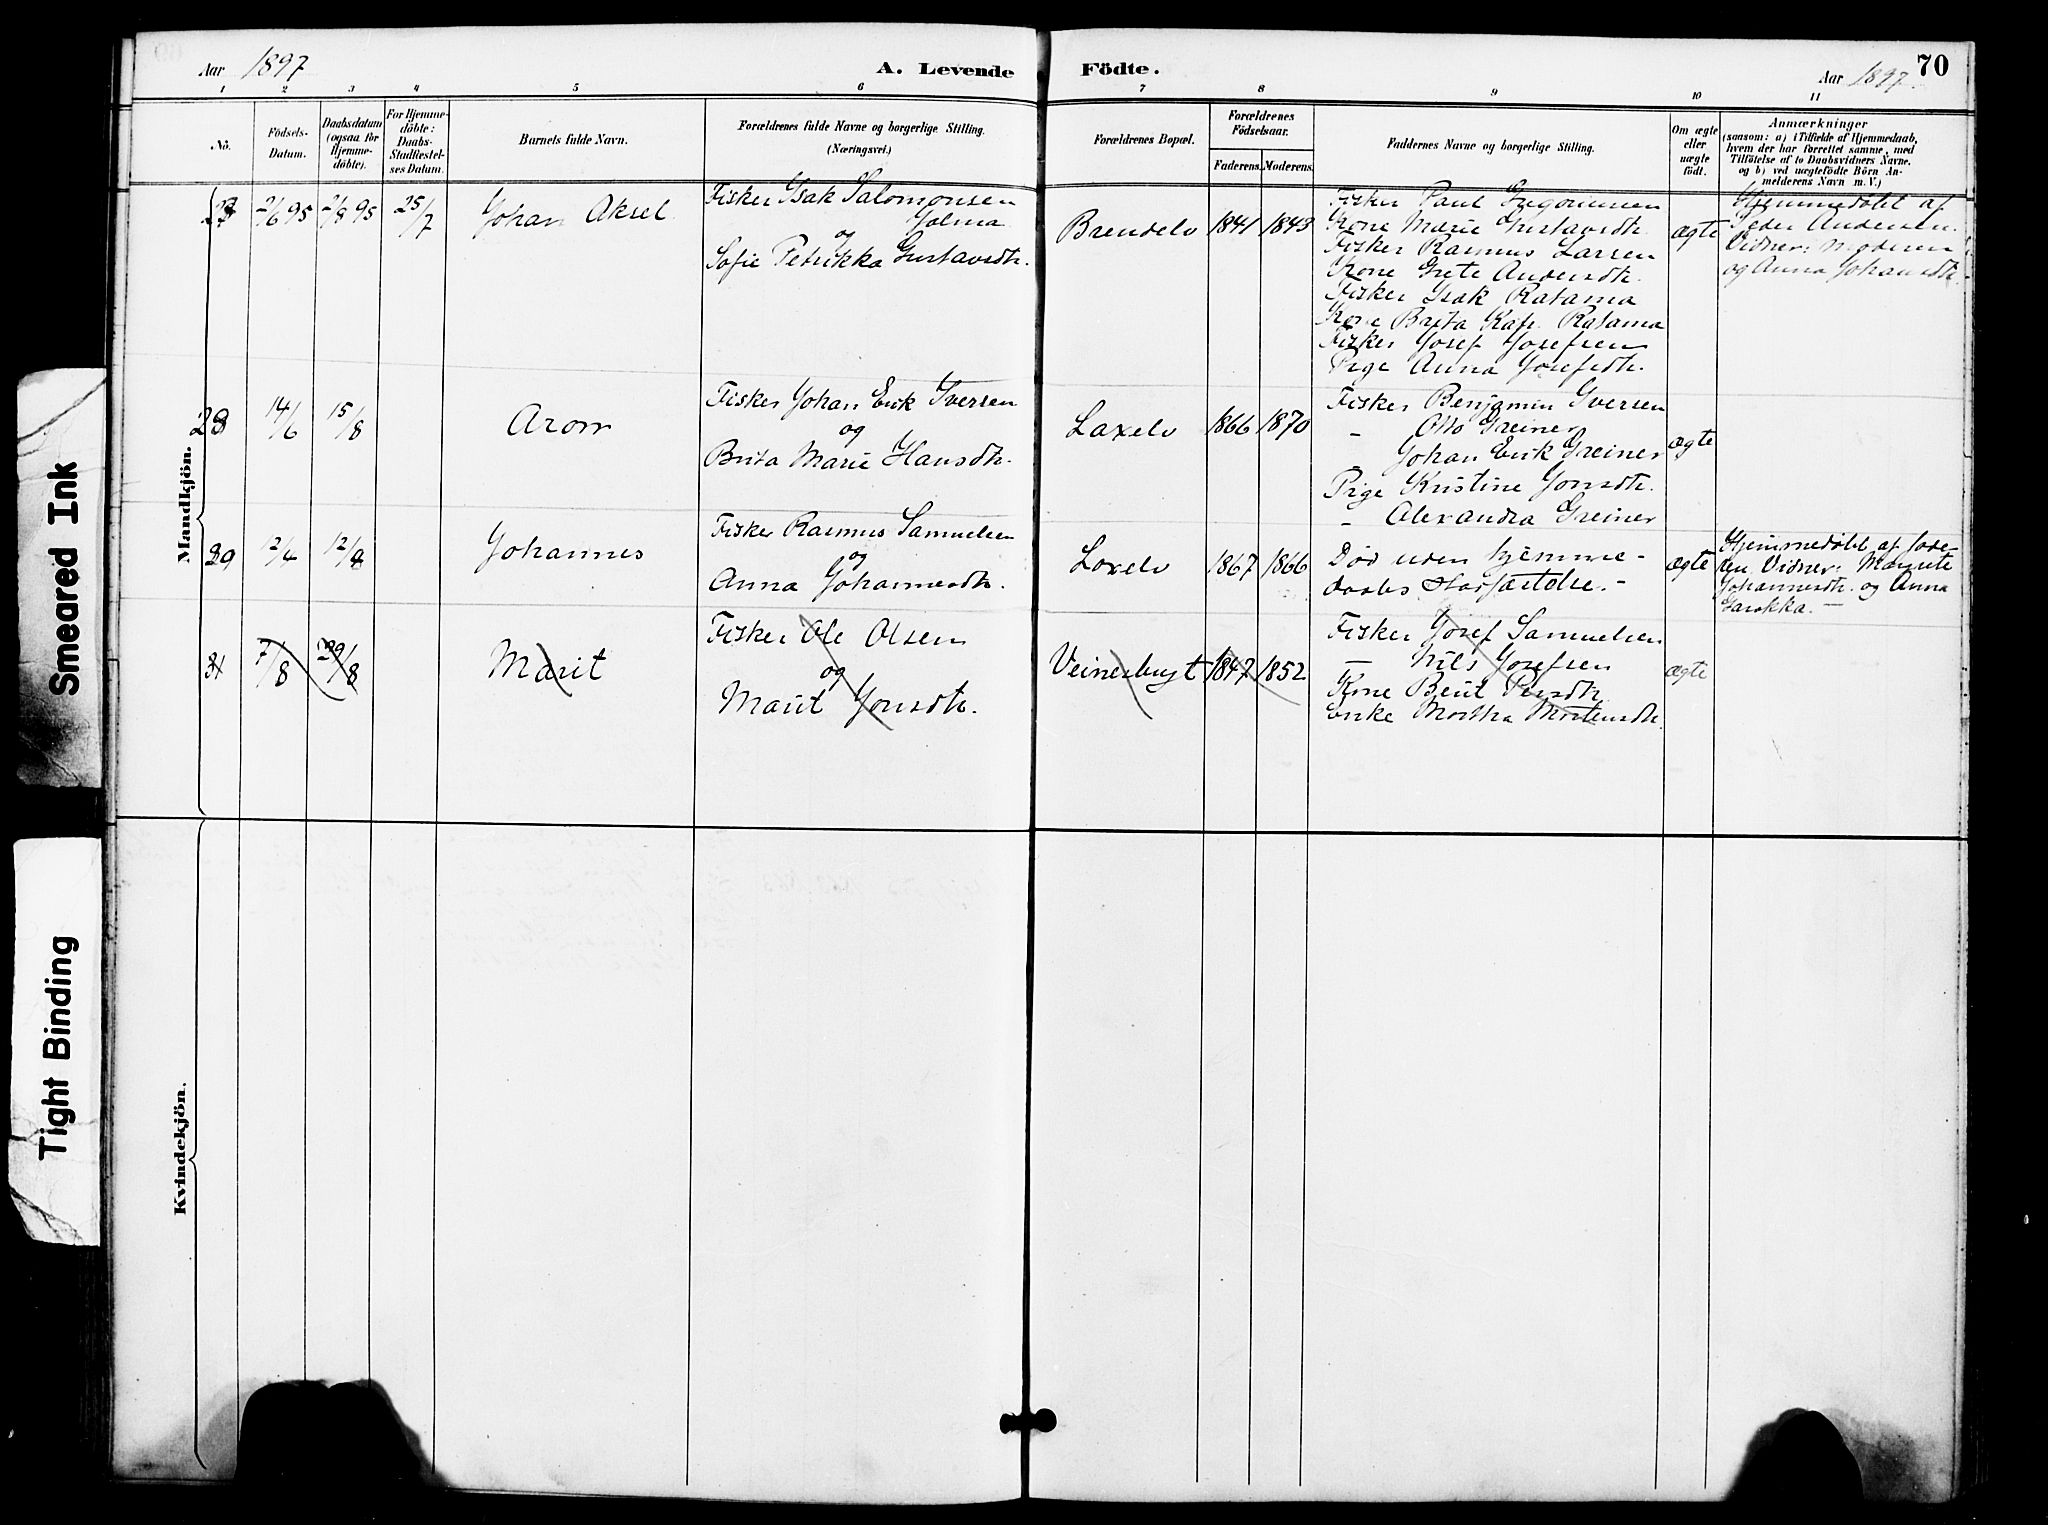 Aar 1897
A. Levende Födte.
Aar 1897.
70
1 2 3 4 5 6 7 8 9 10 11
Nö.
Födsels-Datum.
Daabsdatum (ogsaa for Hjemme-döbte).
For Hjemme-döbte: Daabs-Stadfæstel-ses Datum.
Barnets fulde Navn.
Forældrenes fulde Navne og borgerlige Stilling.
(Næringsvei.)
Forældrenes Bopæl.
Forældrenes Födselsaar.
Faderens. Moderens.
Faddernes Navne og borgerlige Stilling.
Om ægte eller uægte födt.
Anmærkninger
(saasom: a) i Tilfælde af Hjemmedaab,
hvem der har forrettet samme, med
Tilföielse af to Daabsvidners Navne.
og b) ved uægtefödte Börn An-
melderens Navn m. V.)
Mandkjön.
27 2/6 95 2/8 95 25/7
Johan Aksel
Fisker Isak Salomonsen
Jolma
og
Sofie Petrikka Gustavsdtr.
Brendelv 1841 1843
Fisker Paul
Kone Marie Gustavsdtr.
Fisker Rasmus Larsen
Kone Grete Andersdtr.
Fisker Isak Ratama
Kone Brita Kajs. Ratama
Fisker Josef Josefsen
Pige Anna Josefsdtr.
ægte
Hjemmedöbt af
Peder Andersen.
Vidner: Moderen
og Anna Johansdtr.
28 14/6 15/8
Aron
Fisker Johan Erik Iversen
og
Brita Marie Hansdtr.
Laxelv 1866 1870
Fisker Benjamin Iversen
— Otto Greiner
Johan Erik Greiner
Pige Kristine Jonsdtr.
— Alexandra Greiner
ægte
29 12/4 12/4
Johannes
Fisker Rasmus Samuelsen
og
Anna Johannesdtr.
Laxelv 1867 1866
Död uden hjemme-
daabs Stadfæstelse. —
ægte
Hjemmedöbt af fade-
ren. Vidner:
Johannesdtr. og Anna
31 7/8 29/8
Marit
Fisker Ole Olsen
og
Marit Jonsdtr.
Veinesbugt 1847 1852
Fisker Josef Samuelsen
— Nils Josefsen
Kone Berit Persdtr.
Enke Martha Mortensdtr.
ægte
Kvindekjön.
Smeared Ink
Tight Binding